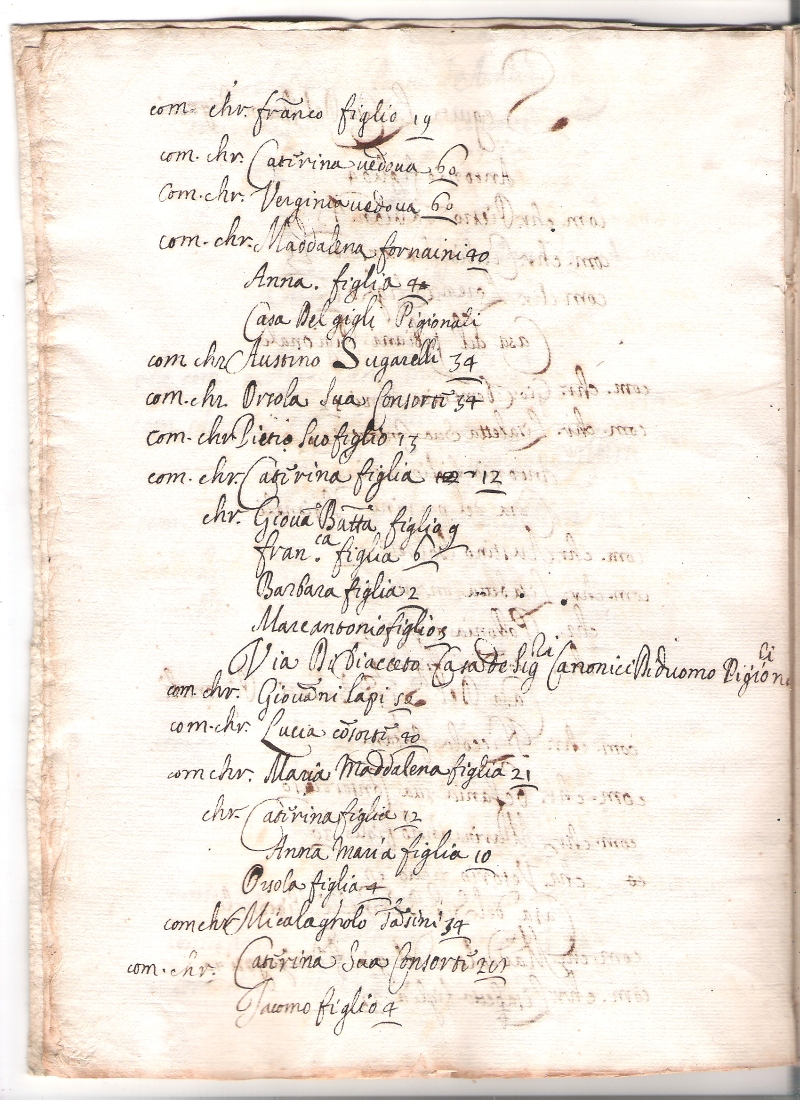 com. chr. franco figlio 19
com. chr. Caterina vedova 60
Com. chr. Verginia vedova 60
com. chr. Maddalena fornaini 40
Anna. figlia 4
Casa Del gigli Pigionali
com chr Austino Sugarelli 34
com. chr. Orsola Sua Consorte 34
com. chr Pietro Suo figlio 13
com. chr. Caterina figlia 12
chr. Giova Batta figlio 9
fran.ca figlia 6
Barbara figlia 2
Marcantonio figlio
Via Di Diacceto Casa De Sig.ri Canonici Di duomo Pigion.li
com chr. Giovanni lapi 50
com. chr. Lucia cosorte 40
com chr. Maria Maddalena figlia 21
chr. Caterina figlia 12
Anna Maria figlia 10
Orsola figlia 4
com chr Micalagholo Tasini 34
com. chr. Caterina Sua Consorte
Jacomo figlio 4